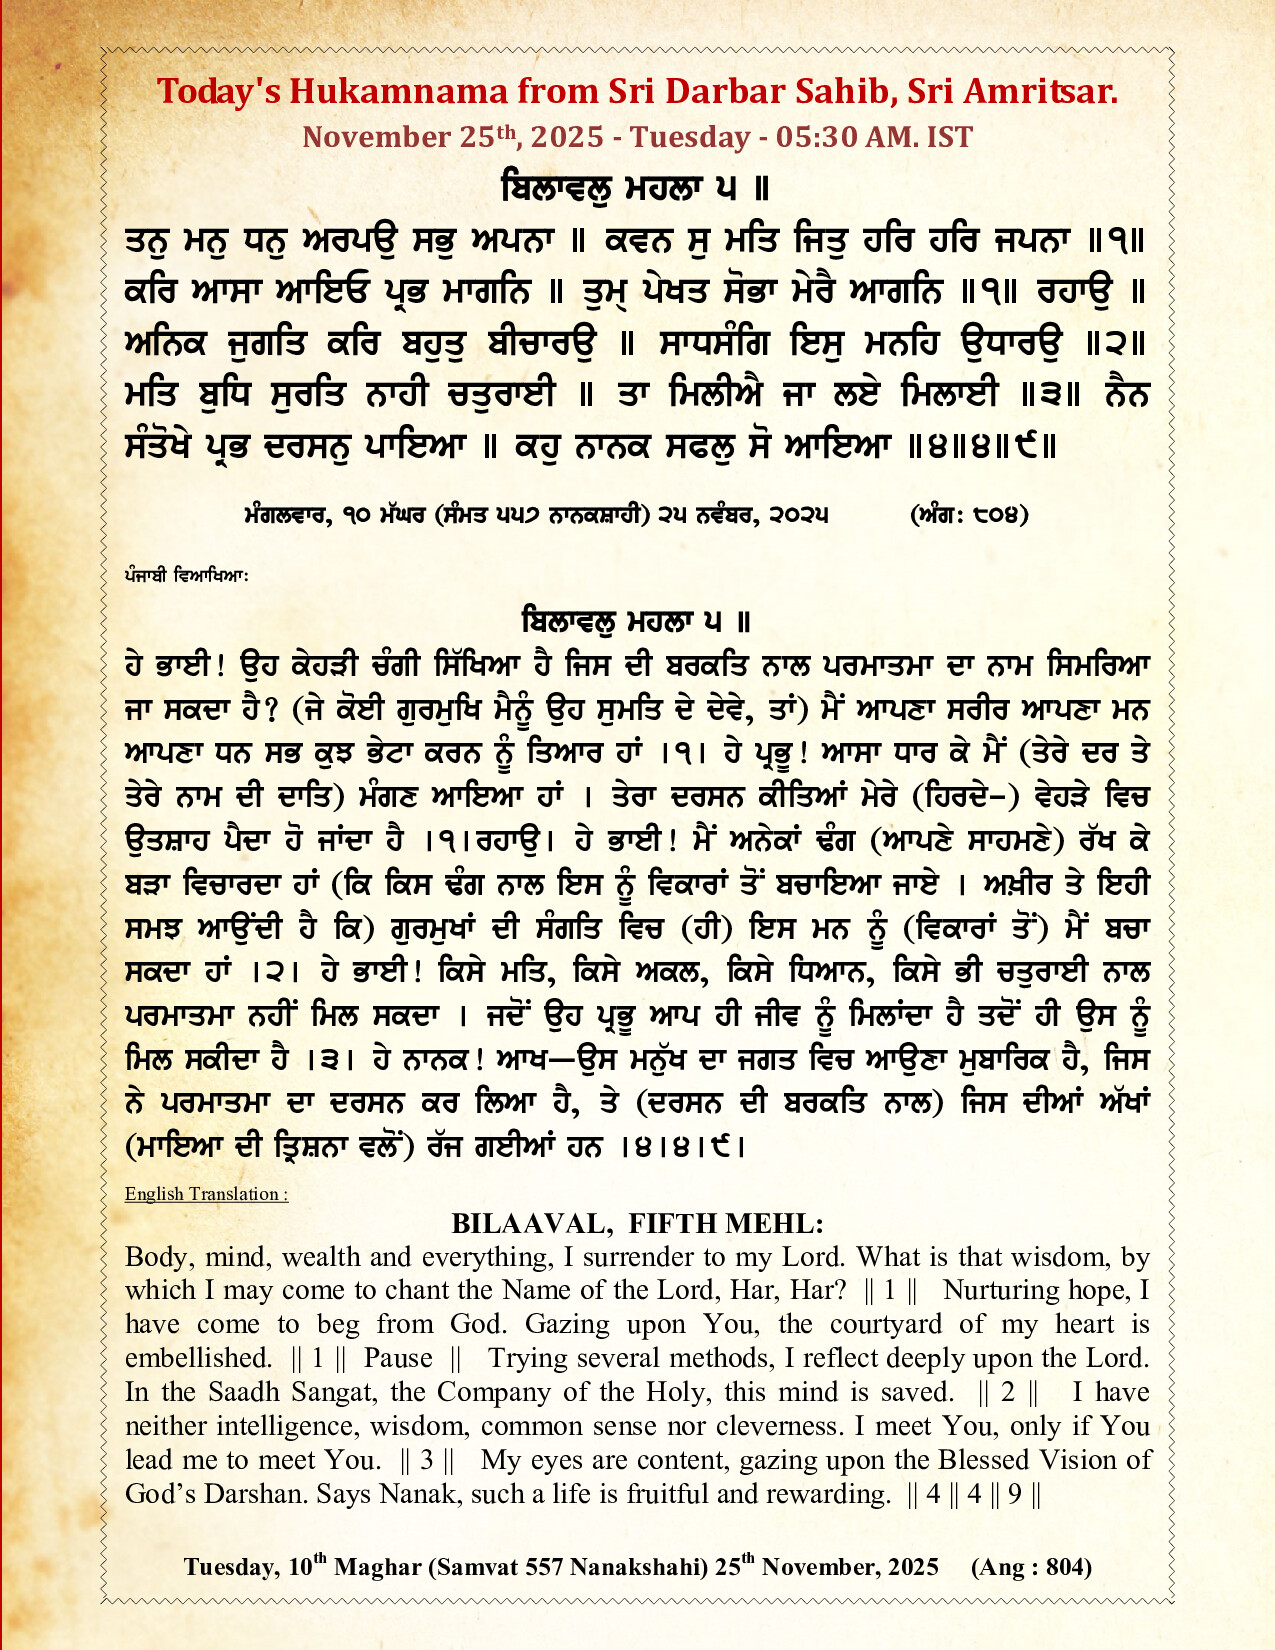 Today's Hukamnama from Sri Darbar Sahib, Sri Amritsar.
November 25th, 2025 - Tuesday - 05:30 AM. IST
ਬਿਲਾਵਲੁ ਮਹਲਾ ੫ ॥
ਤਨੁ ਮਨੁ ਧਨੁ ਅਰਪਉ ਸਭੁ ਅਪਨਾ ॥ ਕਵਨ ਸੁ ਮਤਿ ਜਿਤੁ ਹਰਿ ਹਰਿ ਜਪਨਾ ॥੧॥
ਕਰਿ ਆਸਾ ਆਇਓ ਪ੍ਰਭ ਮਾਗਨਿ ॥ ਤੁਮ੍ ਪੇਖਤ ਸੋਭਾ ਮੇਰੈ ਆਗਨਿ ॥੧॥ ਰਹਾਉ ॥
ਅਨਿਕ ਜੁਗਤਿ ਕਰਿ ਬਹੁਤੁ ਬੀਚਾਰਉ ॥ ਸਾਧਸੰਗਿ ਇਸੁ ਮਨਹਿ ਉਧਾਰਉ ॥੨॥
ਮਤਿ ਬੁਧਿ ਸੁਰਤਿ ਨਾਹੀ ਚਤੁਰਾਈ ॥ ਤਾ ਮਿਲੀਐ ਜਾ ਲਏ ਮਿਲਾਈ ॥੩॥ ਨੈਨ
ਸੰਤੋਖੇ ਪ੍ਰਭ ਦਰਸਨੁ ਪਾਇਆ ॥ ਕਹੁ ਨਾਨਕ ਸਫਲੁ ਸੋ ਆਇਆ ॥੪॥੪॥੯॥
ਮੰਗਲਵਾਰ, ੧੦ ਮੱਘਰ (ਸੰਮਤ ੫੫੭ ਨਾਨਕਸ਼ਾਹੀ) ੨੫ ਨਵੰਬਰ, ੨੦੨੫ (ਅੰਗ: ੮੦੪)
ਪੰਜਾਬੀ ਵਿਆਖਿਆ:
ਬਿਲਾਵਲੁ ਮਹਲਾ ੫ ॥
ਹੇ ਭਾਈ! ਉਹ ਕੇਹੜੀ ਚੰਗੀ ਸਿੱਖਿਆ ਹੈ ਜਿਸ ਦੀ ਬਰਕਤਿ ਨਾਲ ਪਰਮਾਤਮਾ ਦਾ ਨਾਮ ਸਿਮਰਿਆ
ਜਾ ਸਕਦਾ ਹੈ? (ਜੇ ਕੋਈ ਗੁਰਮੁਖਿ ਮੈਨੂੰ ਉਹ ਸੁਮਤਿ ਦੇ ਦੇਵੇ, ਤਾਂ) ਮੈਂ ਆਪਣਾ ਸਰੀਰ ਆਪਣਾ ਮਨ
ਆਪਣਾ ਧਨ ਸਭ ਕੁਝ ਭੇਟਾ ਕਰਨ ਨੂੰ ਤਿਆਰ ਹਾਂ ।੧। ਹੇ ਪ੍ਰਭੂ! ਆਸਾ ਧਾਰ ਕੇ ਮੈਂ (ਤੇਰੇ ਦਰ ਤੇ
ਤੇਰੇ ਨਾਮ ਦੀ ਦਾਤਿ) ਮੰਗਣ ਆਇਆ ਹਾਂ । ਤੇਰਾ ਦਰਸਨ ਕੀਤਿਆਂ ਮੇਰੇ (ਹਿਰਦੇ-) ਵੇਹੜੇ ਵਿਚ
ਉਤਸ਼ਾਹ ਪੈਦਾ ਹੋ ਜਾਂਦਾ ਹੈ ।੧।ਰਹਾਉ। ਹੇ ਭਾਈ! ਮੈਂ ਅਨੇਕਾਂ ਢੰਗ (ਆਪਣੇ ਸਾਹਮਣੇ) ਰੱਖ ਕੇ
ਬੜਾ ਵਿਚਾਰਦਾ ਹਾਂ (ਕਿ ਕਿਸ ਢੰਗ ਨਾਲ ਇਸ ਨੂੰ ਵਿਕਾਰਾਂ ਤੋਂ ਬਚਾਇਆ ਜਾਏ । ਅਖ਼ੀਰ ਤੇ ਇਹੀ
ਸਮਝ ਆਉਂਦੀ ਹੈ ਕਿ) ਗੁਰਮੁਖਾਂ ਦੀ ਸੰਗਤਿ ਵਿਚ (ਹੀ) ਇਸ ਮਨ ਨੂੰ (ਵਿਕਾਰਾਂ ਤੋਂ) ਮੈਂ ਬਚਾ
ਸਕਦਾ ਹਾਂ ।੨। ਹੇ ਭਾਈ! ਕਿਸੇ ਮਤਿ, ਕਿਸੇ ਅਕਲ, ਕਿਸੇ ਧਿਆਨ, ਕਿਸੇ ਭੀ ਚਤੁਰਾਈ ਨਾਲ
ਪਰਮਾਤਮਾ ਨਹੀਂ ਮਿਲ ਸਕਦਾ । ਜਦੋਂ ਉਹ ਪ੍ਰਭੂ ਆਪ ਹੀ ਜੀਵ ਨੂੰ ਮਿਲਾਂਦਾ ਹੈ ਤਦੋਂ ਹੀ ਉਸ ਨੂੰ
ਮਿਲ ਸਕੀਦਾ ਹੈ ।੩। ਹੇ ਨਾਨਕ! ਆਖ—ਉਸ ਮਨੁੱਖ ਦਾ ਜਗਤ ਵਿਚ ਆਉਣਾ ਮੁਬਾਰਿਕ ਹੈ, ਜਿਸ
ਨੇ ਪਰਮਾਤਮਾ ਦਾ ਦਰਸਨ ਕਰ ਲਿਆ ਹੈ, ਤੇ (ਦਰਸਨ ਦੀ ਬਰਕਤਿ ਨਾਲ) ਜਿਸ ਦੀਆਂ ਅੱਖਾਂ
(ਮਾਇਆ ਦੀ ਤ੍ਰਿਸ਼ਨਾ ਵਲੋਂ) ਰੱਜ ਗਈਆਂ ਹਨ ।੪।੪।੯।
English Translation :
BILAAVAL, FIFTH MEHL:
Body, mind, wealth and everything, I surrender to my Lord. What is that wisdom, by
which I may come to chant the Name of the Lord, Har, Har? || 1 || Nurturing hope, I
have come to beg from God. Gazing upon You, the courtyard of my heart is
embellished. || 1 || Pause || Trying several methods, I reflect deeply upon the Lord.
In the Saadh Sangat, the Company of the Holy, this mind is saved. || 2 || I have
neither intelligence, wisdom, common sense nor cleverness. I meet You, only if You
lead me to meet You. || 3 || My eyes are content, gazing upon the Blessed Vision of
God’s Darshan. Says Nanak, such a life is fruitful and rewarding. || 4 || 4 || 9 ||
Tuesday, 10th Maghar (Samvat 557 Nanakshahi) 25th November, 2025 (Ang : 804)